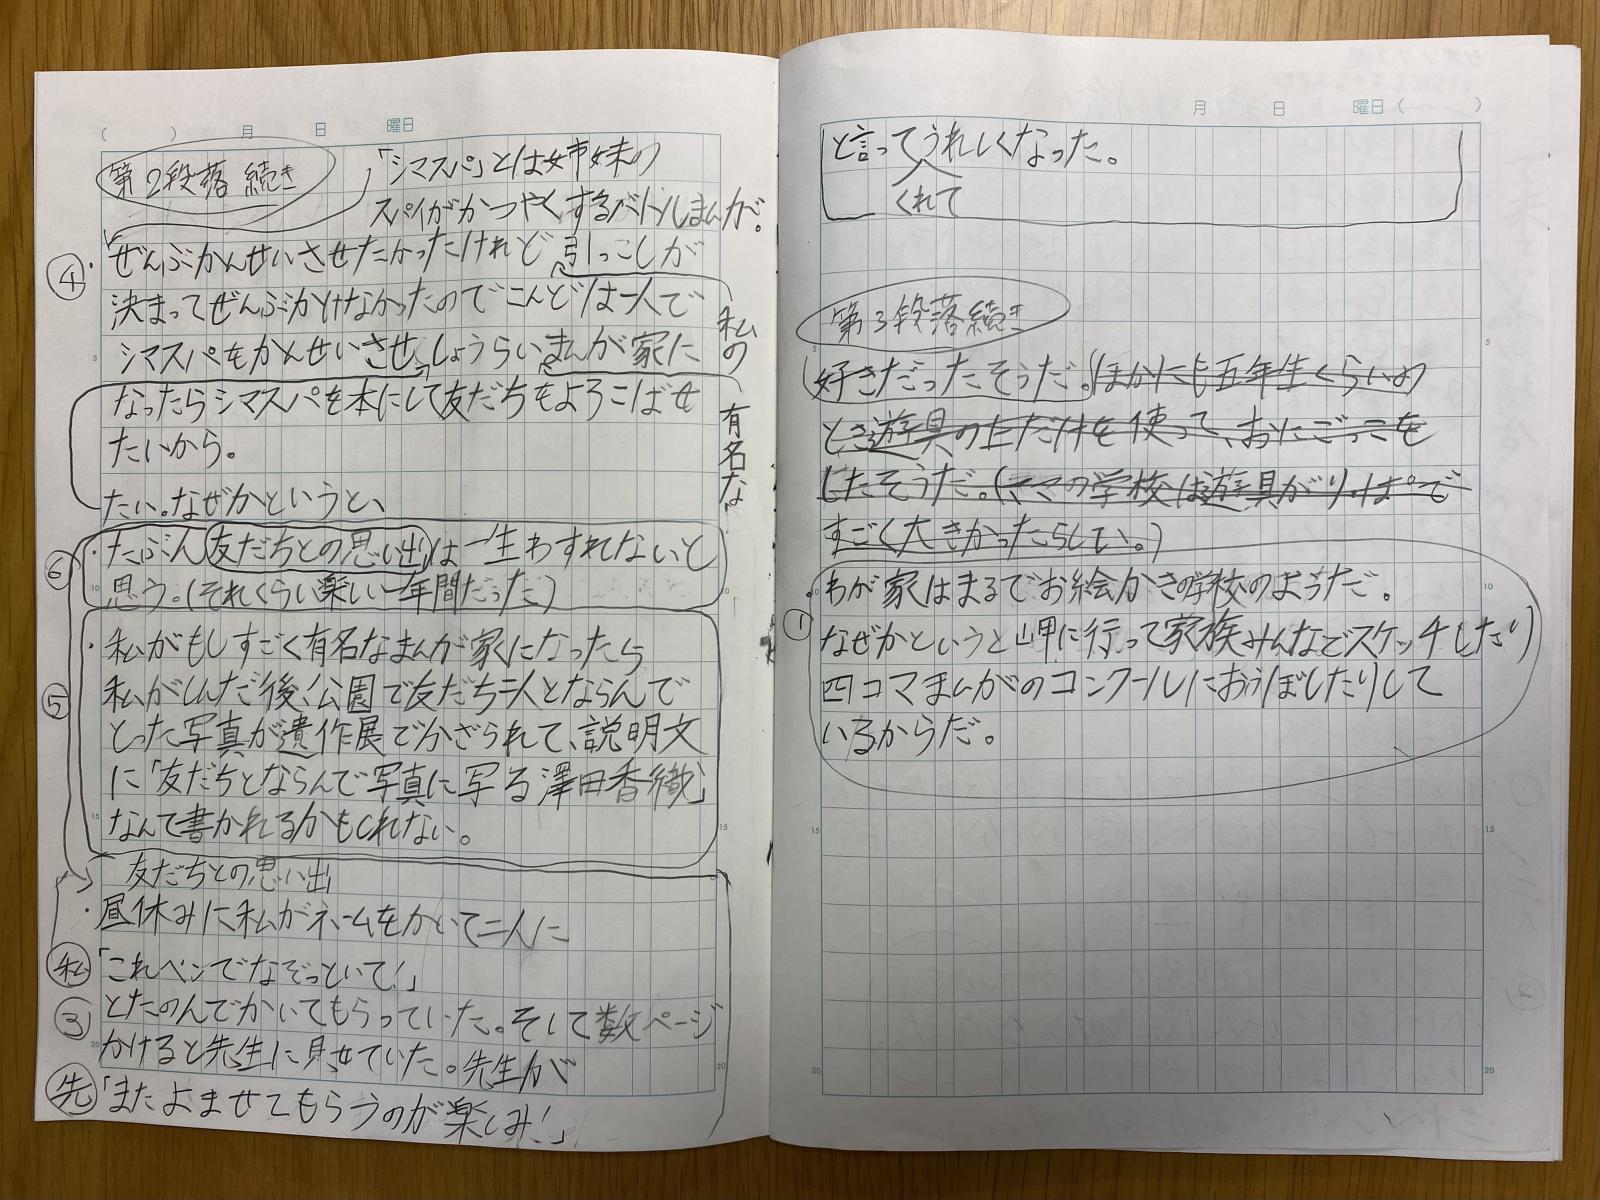 ( ) 月 日 曜日
第2段落 続き
「シマスパ」とは姉妹の
スパイがかつやくするバトルまんが。
④
・ぜんぶかんせいさせたかったけれど引っこしが
決まってぜんぶかけなかったのでこんどは一人で
シマスパをかんせいさせしょうらいまんが家に
私の
有名な
なったらシマスパを本にして友だちをよろこばせ
たいから。
たい。なぜかというと、
⑥
・たぶん友だちとの思い出は一生わすれないと
思う。(それくらい楽しい一年間だった)
⑤
・私がもしすごく有名なまんが家になったら
私がしんだ後、公園で友だち二人とならんで
とった写真が遺作展でかざられて、説明文
に「友だちとならんで写真に写る澤田香織」
なんて書かれるかもしれない。
友だちとの思い出
・昼休みに私がネームをかいて二人に
私「これペンでなぞっといて!」
③とたのんでかいてもらっていた。そして数ページ
かけると先生に見せていた。先生が
先「またよませてもらうのが楽しみ!」
月 日 曜日 ( )
と言ってうれしくなった。
くれて
第3段落続き
好きだったそうだ。(ほかにも五年生くらいの
とき遊具の上だけを使って、おにごっこを
したそうだ。(ママの学校は遊具がりっぱで
すごく大きかったらしい。)
①
・わが家はまるでお絵かきの学校のようだ。
なぜかというと岬に行って家族みんなでスケッチしたり
四コマまんがのコンクールにおうぼしたりして
いるからだ。